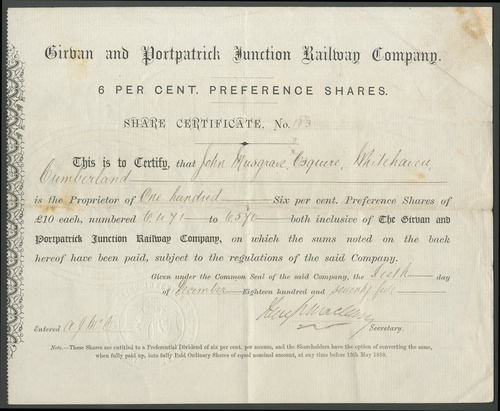 Girvan and Portpatrick Junction Railway Company.
6 PER CENT. PREFERENCE SHARES.
SHARE CERTIFICATE, No.
This is to Certify, that John Musgrave Esquire, Whitehaven,
Cumberland
is the Proprietor of One hundred Six per cent. Preference Shares of
£10 each, numbered 6471 to 6570 both inclusive of The Girvan and
Portpatrick Junction Railway Company, on which the sums noted on the back
hereof have been paid, subject to the regulations of the said Company.
Given under the Common Seal of the said Company, the Sixth day
of December Eighteen hundred and seventy five
Entered
Secretary.
Note.—These Shares are entitled to a Preferential Dividend of six per cent. per annum, and the Shareholders have the option of converting the same,
when fully paid up, into fully Paid Ordinary Shares of equal nominal amount, at any time before 15th May 1880.